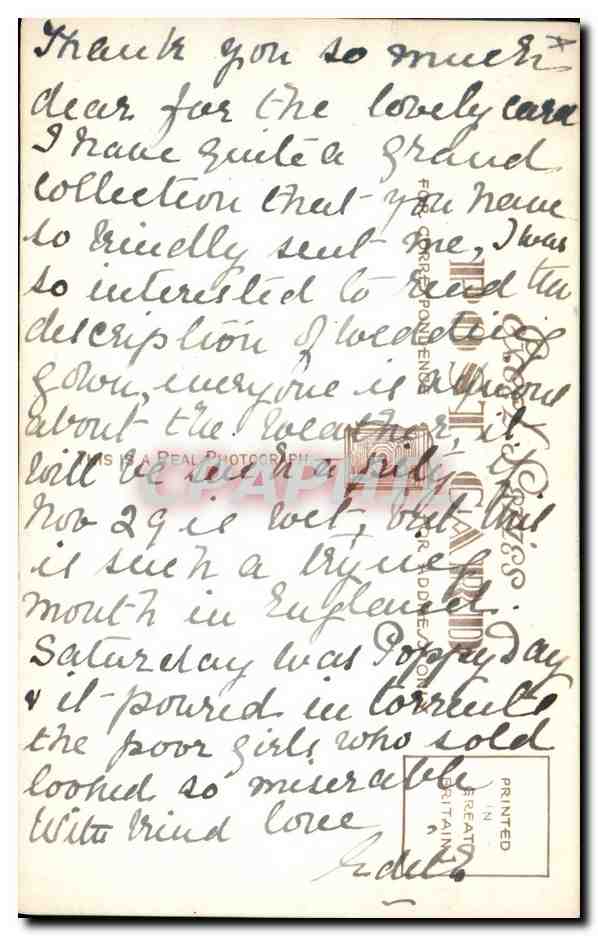 Thank you so much
dear for the lovely card
I have quite a grand
collection that you have
so kindly sent me, I was
so interested to read the
description of wedding
gown, everyone is anxious
about the weather, it
will be such a pity if
Nov 29 is wet, but this
is such a trying
month in England.
Saturday was Poppy Day
& it poured in torrents
the poor girls who sold
looked so miserable
With kind love
Edith
THIS IS A REAL PHOTOGRAPH
FOR CORRESPONDENCE
POST CARD
FOR ADDRESS ONLY
PRINTED
IN
GREAT
BRITAIN
CPAPHIL